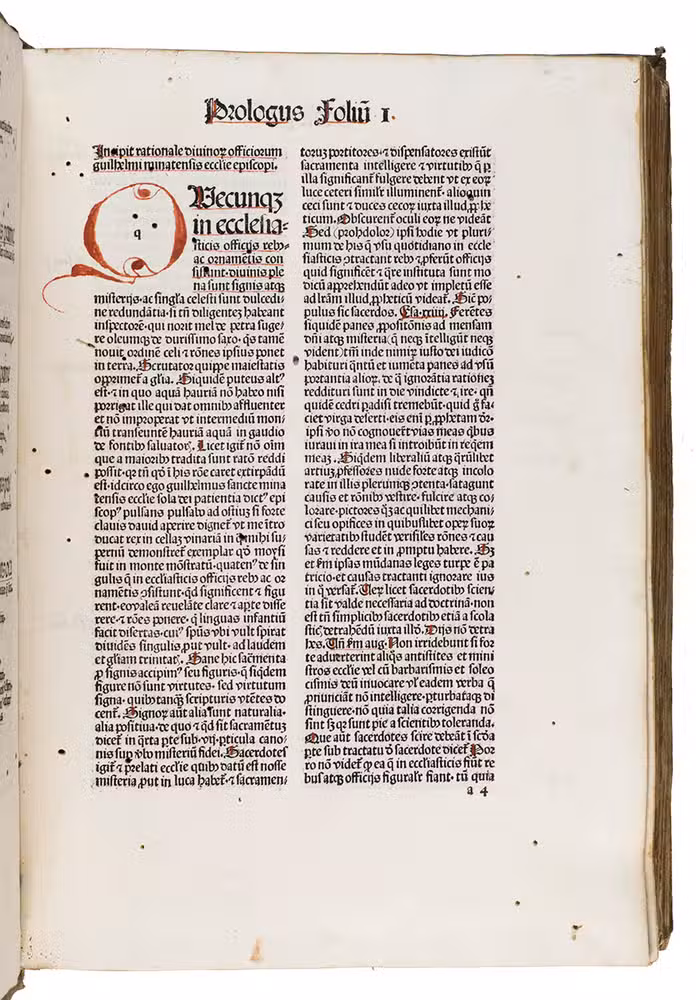 Prologus Foliū I.
Incipit rationale diuinoꝝ officiorum
guilhelmi mimatensis ecclie episcopi.
q
Vecunqꝫ
in ecclesia-
sticis officijs rebꝰ
ac ornamētis con
sistunt·diuinis ple
na sunt signis atqꝫ
misterijs·ac singĺa celesti sunt dulcedi
ne redundātia·si tñ diligenteꝫ habeant
inspectorē·qui norit mel de petra suge/
re oleumqꝫ de durissimo saxo·
nouit ordinē celi ⁊ rōnes ipsius ponet
in terra. Scrutator quippe maiestatis
opprimeť a gĺia. Siquidē puteus altꝰ
est·⁊ in quo aquā hauriā nō habeo nisi
porrigat ille qui dat omnibꝰ affluenter
et nō improperat vt intermediū mon/
tiū transeuntē hauriā aquā in gaudio
de fontibꝰ saluatoꝭ. Licet igiť nō oīm
que a maioribꝰ tradita sunt ratō reddi
possit·
est·idcirco ego guilhelmus sancte mima
tensis ecclie sola dei patientia dictꝰ epi
scopꝰ pulsans pulsabo ad ostiū si forte
clauis dauid aperire digneť vt me ītro
ducat rex in cellaꝫ vinariā in
pernū demonstreť exemplar qđ moysi
fuit in monte mōstratū·quatenꝰ de sin
gulis q̄ in ecclīasticis officijs rebꝰ ac or
namētis ↄsistunt·qđ significent ⁊ figu
rent·eo valeā reuelāte clare ⁊ apte disse
rere·⁊ rōes ponere·q̄ linguas infantiū
facit disertas·cuiꝰ spūs vbi vult spirat
diuidēs singulis ꝓut vult·ad laudem
et gĺiam trinitatꝭ. Sane hic sacmenta
ꝓ signis accipimꝰ seu figuris·q̄ siqdem
figure nō sunt virtutes·sed virtutum
signa·quibꝰ tanqꝫ scripturis vtētes do
cenť. Signoꝝ aūt alia sunt naturalia·
alia positiua·de quo ⁊ qđ sit sacramētū
diceť in qrta pte sub·vij·pticula cano/
nis sup vbo misteriū fidei. Sacerdotes
igiť ⁊ prelati ecclie quibꝰ datū est nosse
misteria ꝓut in luca habeť·⁊ sacramen/
toruꝫ portitores·⁊ dispensatores existūt
sacramenta intelligere ⁊ virtutibꝰ q̄ p
illa significanť fulgere debent vt ex eoꝝ
luce ceteri similr illuminenť·alioquin
ceci sunt ⁊ duces cecoꝝ iuxta illud ꝓphe
ticum. Obscurenť oculi eoꝝ ne videāt
Sed (prohdolor) ipsi hodie vt pluri/
mum de his q̄ vsu quotidiano in eccle
siasticis ↄtractant rebꝰ ⁊ pferūt officijs
quid significēt ⁊ qre instituta sunt mo
dicū apprehendūt adeo vt impletū esse
ad lram illud ꝓphēticū videať. Sic po/
pulus sic sacerdos. Esa·xxiiij. Ferētes
siquidē panes ꝓpositōnis ad mensam
dñi atqꝫ misteria
vident) tñ inde nimiꝝ iusto dei iudicō
habituri q̄ntū et iumēta panes ad vsū
portantia alioꝝ. de q̄ ignorātia rationeꝫ
reddituri sunt in die vindicte ⁊ ire·
quidē cedri padisi tremebūt·quid
ciet virga deserti·eis enī p ꝓphetam dr·
ipsi vō nō cognouerť vias meas qbus
iuraui in ira mea si introibūt in reqem
meaꝫ. Siqdem liberaliū atqꝫ qrūlibet
artiuꝫ ꝓfessores nude forte atqꝫ incolo
rate in illis plerūqꝫ ↄtenta·satagunt
causis et rōnibꝰ vestire·fulcire atqꝫ co/
lorare·pictores qꝫ ac quilibet mechani/
ci seu opifices in quibuslibet opeꝝ suoꝝ
varietatibꝰ studēt verisiles rōnes ⁊ cau
sas ⁊ reddere et in promptu habere. Sꝫ
et ẜm ipsas mūdanas leges turpe ē pa
tricio·et causas tractanti ignorare ius
in q̄ versať. Veꝝ licet sacerdotibꝰ scien/
tia sit valde necessaria ad doctrinā·non
est tñ simplicibꝰ sacerdotibꝰ etiā a scola
sticꝭ detrahēdū iuxta illđ. Dijs nō detra
hes. Vñ ẜm aug. Non irridebunt si for
te aduerterint aliqs antistites et mini
stros ecclie vel cū barbarismis et soleo
cismis deū inuocare vl eadem verba q̄
ꝓnūciāt nō intelligere·pturbateqꝫ di
stinguere·nō quia talia corrigenda nō
sint sꝫ qꝛ sunt pie a scientibꝰ toleranda.
Que aūt sacerdotes scire debeāt ī scđa
pte sub tractatu đ sacerdote diceť. Por
ro nō videť q̄ ea q̄ in ecclīasticis fiūt re
bus atqꝫ officijs figuralr fiant·tū quia
a 4